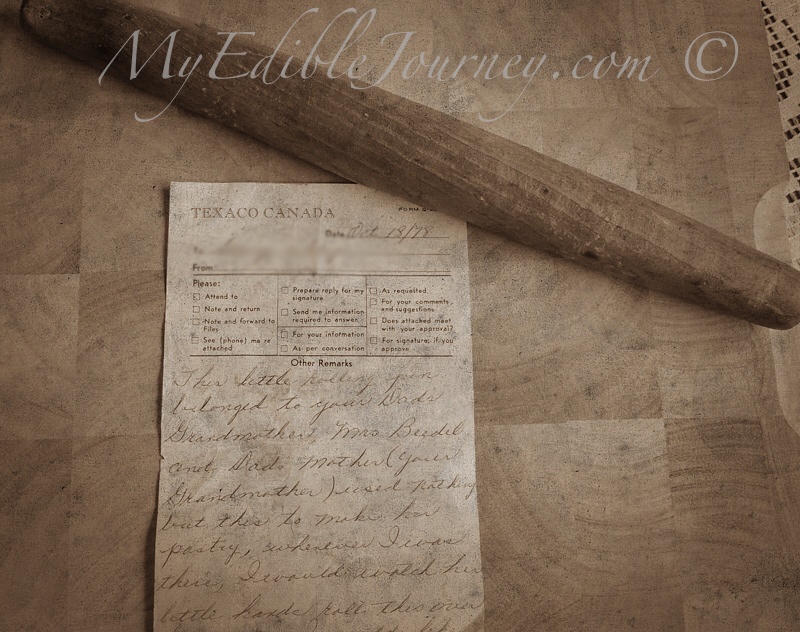 MyEdibleJourney.com ©
TEXACO CANADA
FORM
Date Oct 18/78
From
Please:
Attend to
Note and return
Note and forward to Files
See (phone) me re attached
Prepare reply for my signature
Send me information required to answer
For your information
As per conversation
As requested
For your comments and suggestions
Does attached meet with your approval?
For signature, if you approve
Other Remarks
This little rolling pin
belonged to your Dads
Grandmother, Mrs Beedel
and Dads Mother (your
Grandmother) used nothing
but this to make her
pastry, whenever I was
there, I would watch her
little hands roll this over